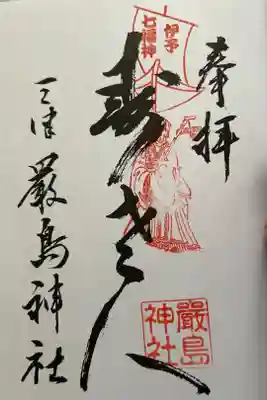 奉拝
伊予
七福神
寿老人
嚴島
神社
三津厳島神社